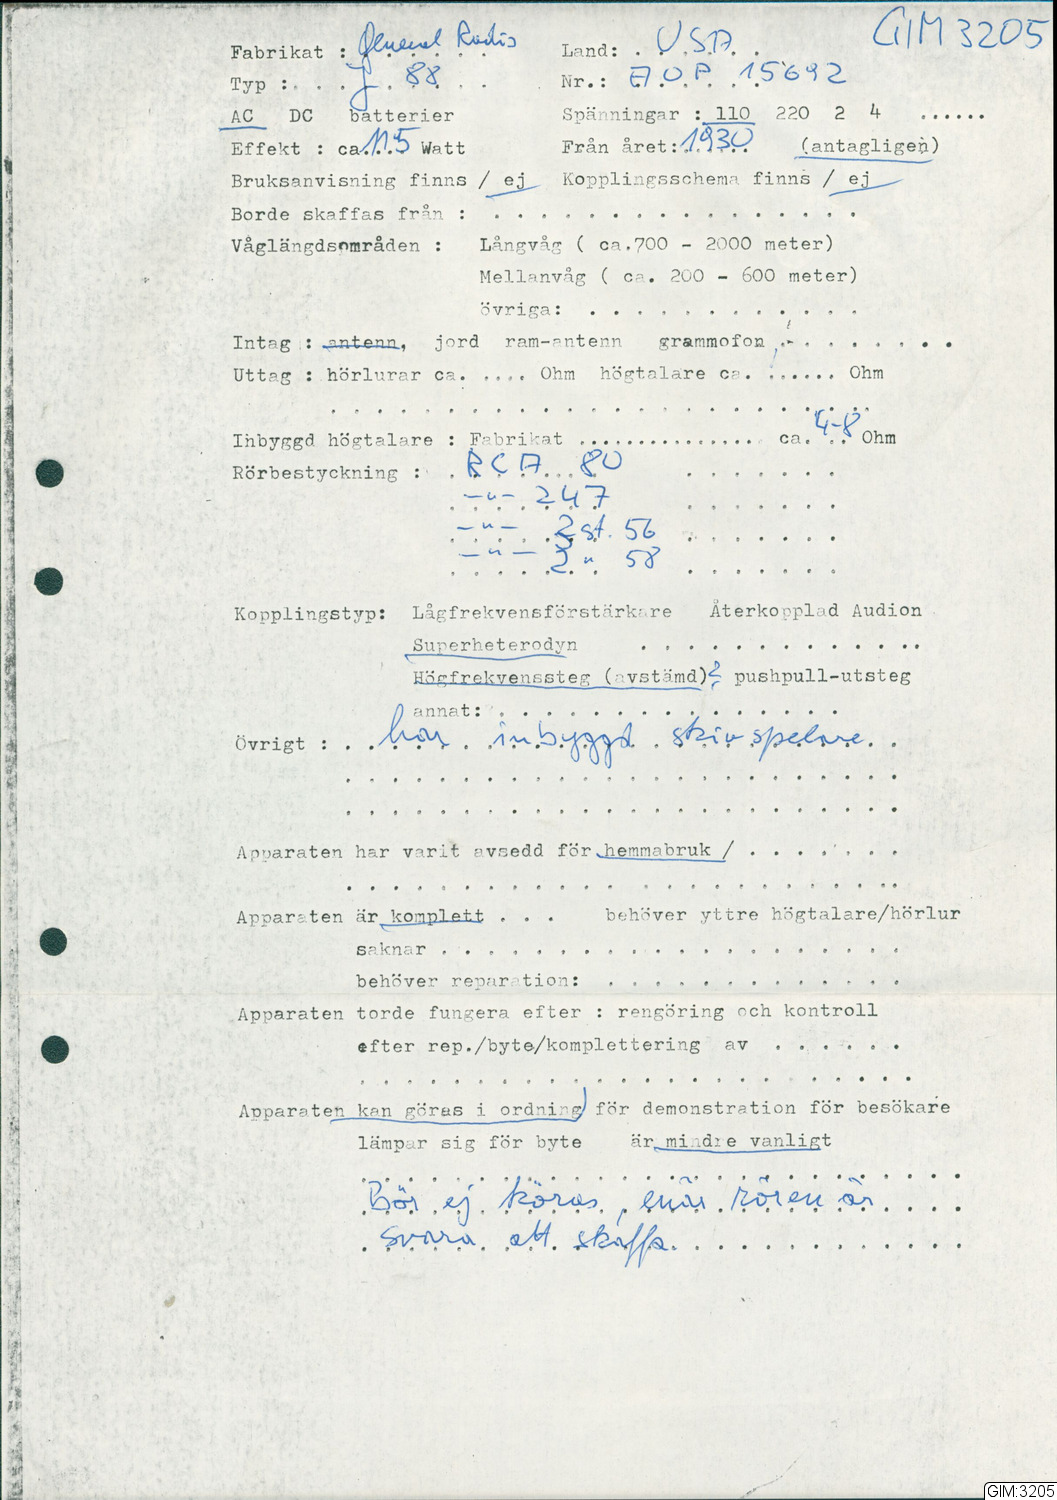 GIM 3205
Fabrikat : General Radio Land: . U.S.A. .
Typ : . . . J . 88 . . Nr.: A.O.P. 15692
AC DC batterier Spänningar : 110 220 2 4 ......
Effekt : ca.115 Watt Från året: 1930 (antagligen)
Bruksanvisning finns / ej Kopplingsschema finns / ej
Borde skaffas från : . . . . . . . . . . . . . . . .
Våglängdsområden : Långvåg ( ca.700 - 2000 meter)
Mellanvåg ( ca. 200 - 600 meter)
övriga: . . . . . . . . . . . .
Intag : antenn, jord ram-antenn grammofon . . . . . . . .
Uttag : hörlurar ca. .... Ohm högtalare ca. ...... Ohm
. . . . . . . . . . . . . . . . . . . . . . .
Inbyggd högtalare : Fabrikat ............... ca. 4-8 Ohm
Rörbestyckning : RCA 80 . . . . . . .
-"- 247 . . . . . . .
-"- 2 st. 56 . . . . . . .
-"- 2 " 58 . . . . . . .
Kopplingstyp: Lågfrekvensförstärkare Återkopplad Audion
Superheterodyn . . . . . . . . . . . . .
Högfrekvenssteg (avstämd)? pushpull-utsteg
annat: . . . . . . . . . . . . . . .
Övrigt : . . har inbyggd skivspelare . .
. . . . . . . . . . . . . . . . . . . . . . .
. . . . . . . . . . . . . . . . . . . . . . .
Apparaten har varit avsedd för hemmabruk / . . . . . . .
. . . . . . . . . . . . . . . . . . . . . . .
Apparaten är komplett . . . behöver yttre högtalare/hörlur
saknar . . . . . . . . . . . . . . . . . . . .
behöver reparation: . . . . . . . . . . . . .
Apparaten torde fungera efter : rengöring och kontroll
efter rep./byte/komplettering av . . . . . .
. . . . . . . . . . . . . . . . . . . . . . .
Apparaten kan göras i ordning) för demonstration för besökare
lämpar sig för byte är mindre vanligt
. . . . . . . . . . . . . . . . . . . . . . . . .
Bör ej köras, enär rören är . . . .
svåra att skaffa. . . . . . . . . . . . .
GIM:3205